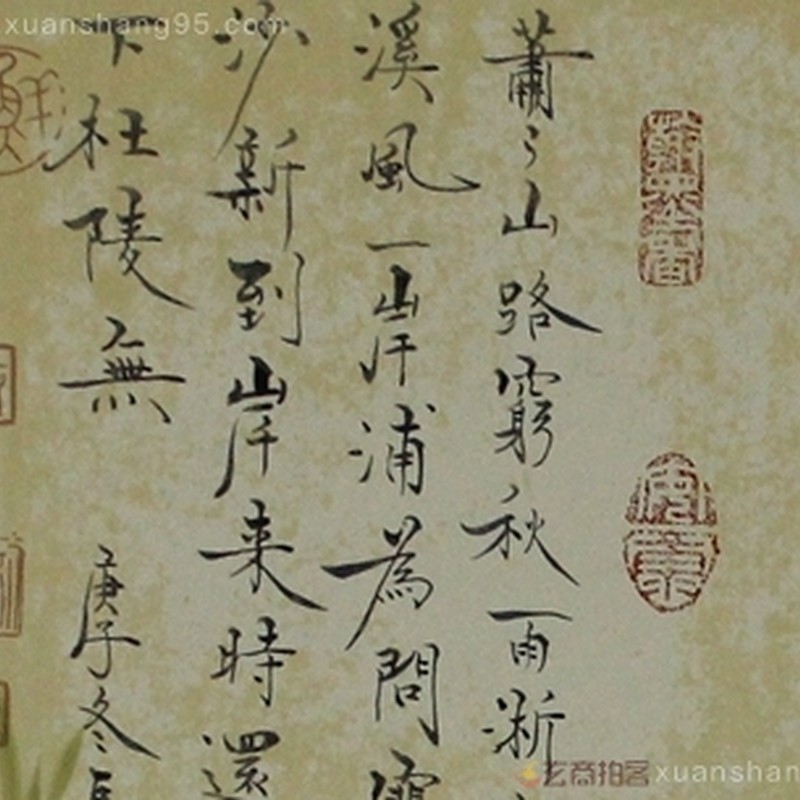 蕭〻山路窮秋雨淅
溪風一岸浦為問
沙新到岸来時還
下杜陵無
庚子冬
xuanshang95.com
玄商拍客 xuanshan